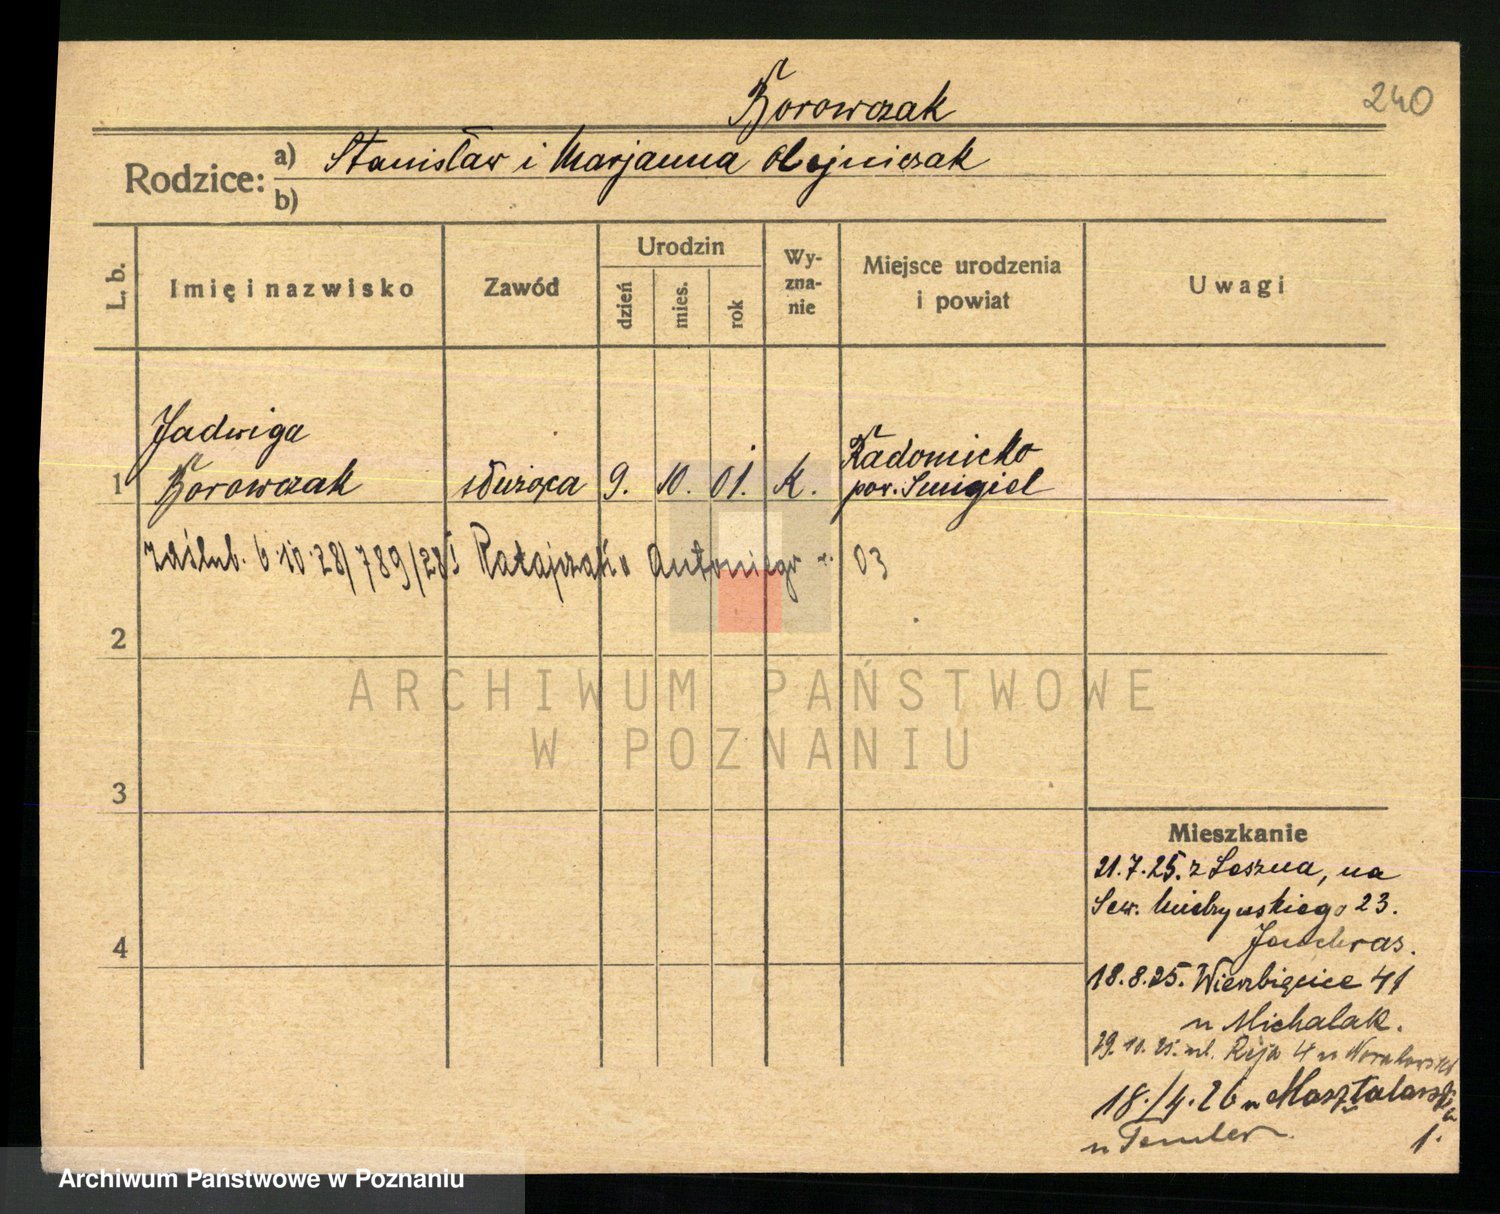 Borowczak
240
Rodzice: a) Stanisław i Marjanna Olejniczak
b)
L. b.
Imię i nazwisko
Zawód
Urodzin
dzień
mies.
rok
Wy-
zna-
nie
Miejsce urodzenia
i powiat
Uwagi
1
Jadwiga
Borowczak
służąca
9. 10. 01. K.
Radomicko
pow. Śmigiel
zaślub. 6.10.28/789/28 Ratajczak Antoniego 03
2
3
4
Mieszkanie
21.7.25. z Leszna, na
Sew. Mielżyńskiego 23.
18.8.25. Wierzbięcice 41
u Michalak.
29.10.25. ul. Reja 4 u
18./4.26 Masztalarska
1.
u
ARCHIWUM PAŃSTWOWE
W POZNANIU
Archiwum Państwowe w Poznaniu